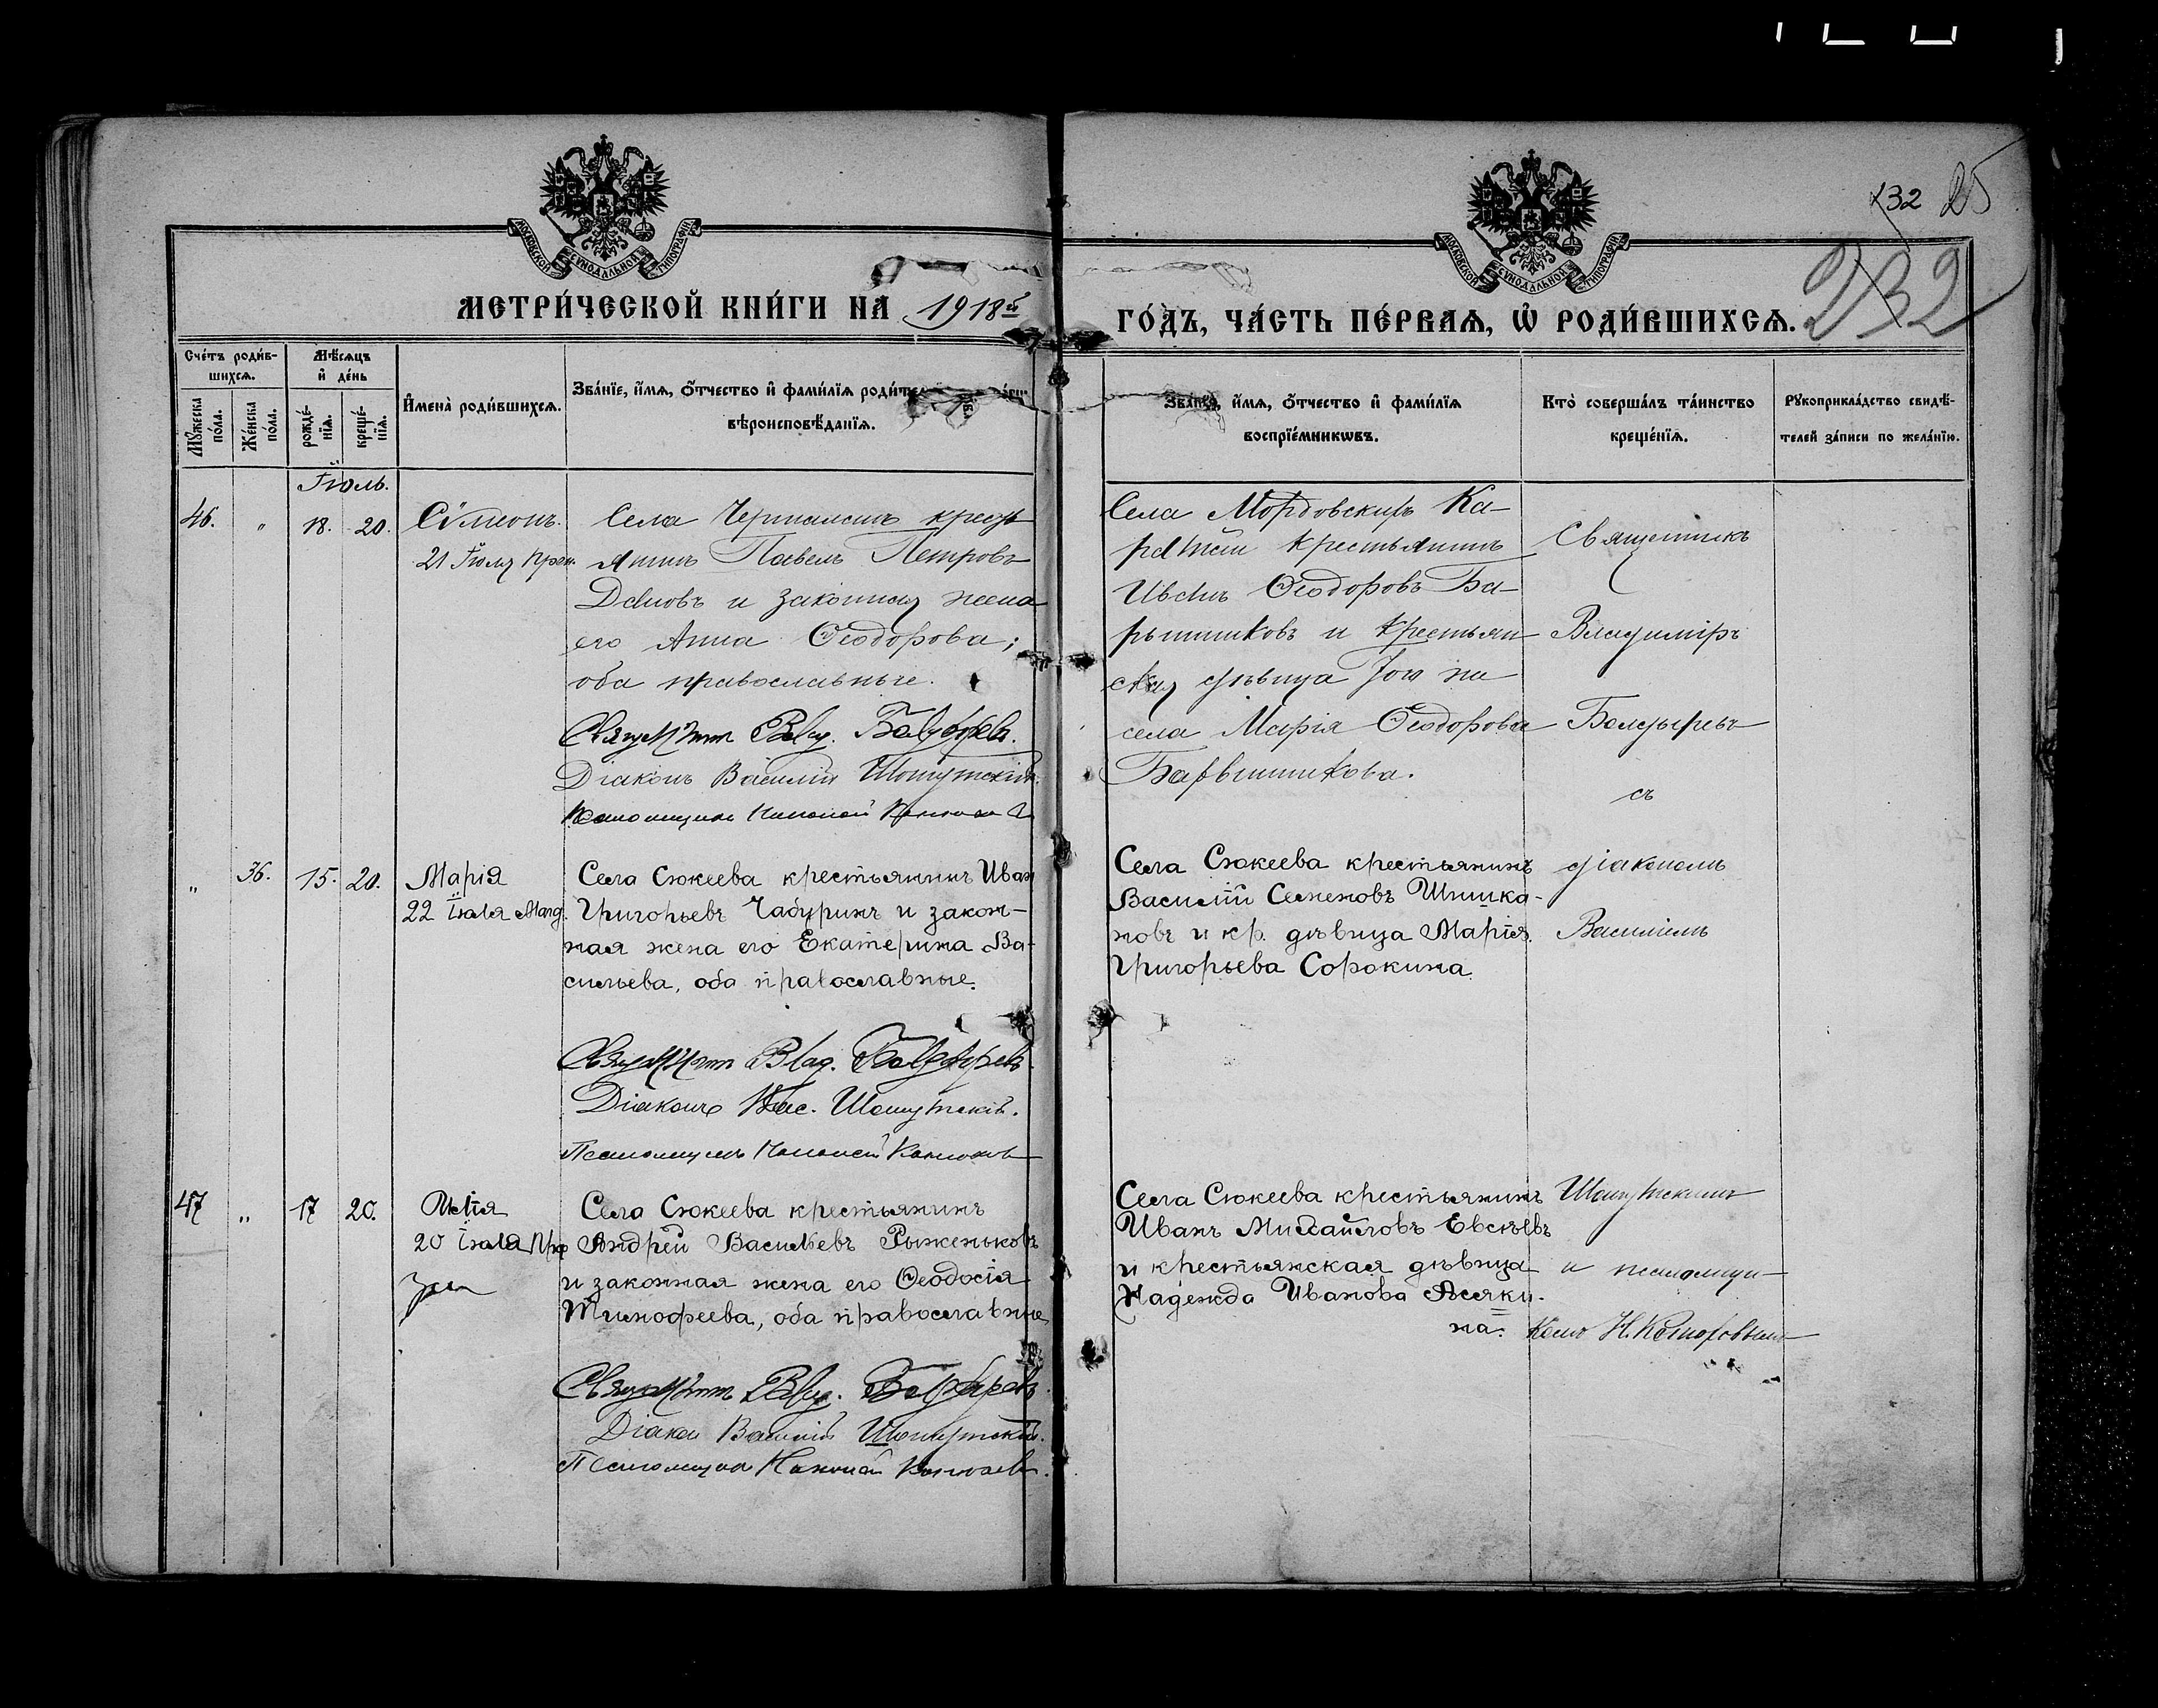 132 25
232
МОСКОВСКОЙ СѴНОДАЛЬНОЙ ТИПОГРАФІИ
МОСКОВСКОЙ СѴНОДАЛЬНОЙ ТИПОГРАФІИ
МЕТРИ́ЧЕСКОЙ КНИ́ГИ НА 1918й
ГО́ДЪ, ЧА́СТЬ ПЕ́РВАѦ, Ѡ҆ РОДИ́ВШИХСѦ.
Сче́тъ роди́в-
шихсѧ.
Мѣ́сѧцъ
и҆ де́нь
Мꙋ́жеска
по́ла.
Же́нска
по́ла.
рожде́-
нїѧ.
креще́-
нїѧ.
И҆мена̀ роди́вшихсѧ.
Зва́нїе, и҆́мѧ, ѻ҆́тчество и҆ фами́лїѧ роди́те
вѣроисповѣ́данїѧ.
Зва́нїе, и҆́мѧ, ѻ҆́тчество и҆ фами́лїѧ
воспрїе́мникѡвъ.
Кто̀ соверша́лъ та́инство
креще́нїѧ.
Рꙋкоприкла́дство свидѣ́-
телей за́писи по жела́нїю.
Іюль.
46. " 18. 20. Сѵмеонъ.
21 Іюля
Села кресть
янинъ Павелъ Петровъ
и законная жена
его Анна Ѳеодорова;
оба православные.
Священникъ Влад. Болдыревъ.
Діаконъ Василій
Псаломщикъ Николай
Села Мордовскихъ Ка-
ратай крестьянинъ
Иванъ Ѳеодоровъ Ба-
рышниковъ и крестьян
ская дѣвица того же
села Марія Ѳеодорова
Барышникова.
Священникъ
Владиміръ
Болдыревъ
съ
" 36. 15. 20. Марія
22 Іюля Магд.
Села Сюкеева крестьянинъ Иван
Григорьевъ Чабуринъ и закон-
ная жена его Екатерина Ва-
сильева, оба православные.
Священникъ Влад. Болдыревъ.
Діаконъ Вас.
Псаломщикъ Николай
Села Сюкеева крестьянинъ
Василій Семеновъ Шишка-
новъ и кр. дѣвица Марія
Григорьева Сорокина.
діакономъ
Василіемъ
47 " 17 20. Илія
20 Іюля Прор
Села Сюкеева крестьянинъ
Андрей Васильевъ Рыженьковъ
и законная жена его Ѳеодосія
Тимофеева, оба православные
Священникъ Влад. Болдыревъ.
Діакон Василій
Псаломщикъ Николай
Села Сюкеева крестьянинъ
Иванъ Михайловъ Евсѣевъ
и крестьянская дѣвица
Надежда Иванова Асяки-
на.
и псаломщи-
комъ Н.